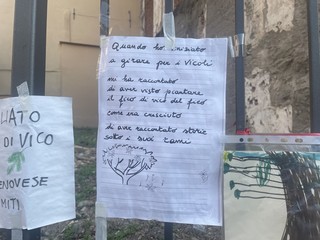 Quando ho iniziato
a girare per i Vicoli
mi ha raccontato
di aver visto piantare
il fico di vico del fico
come era cresciuto
di aver raccontato storie
sotto i suoi rami
LATO
DI VICO
ENOVESE
MITI